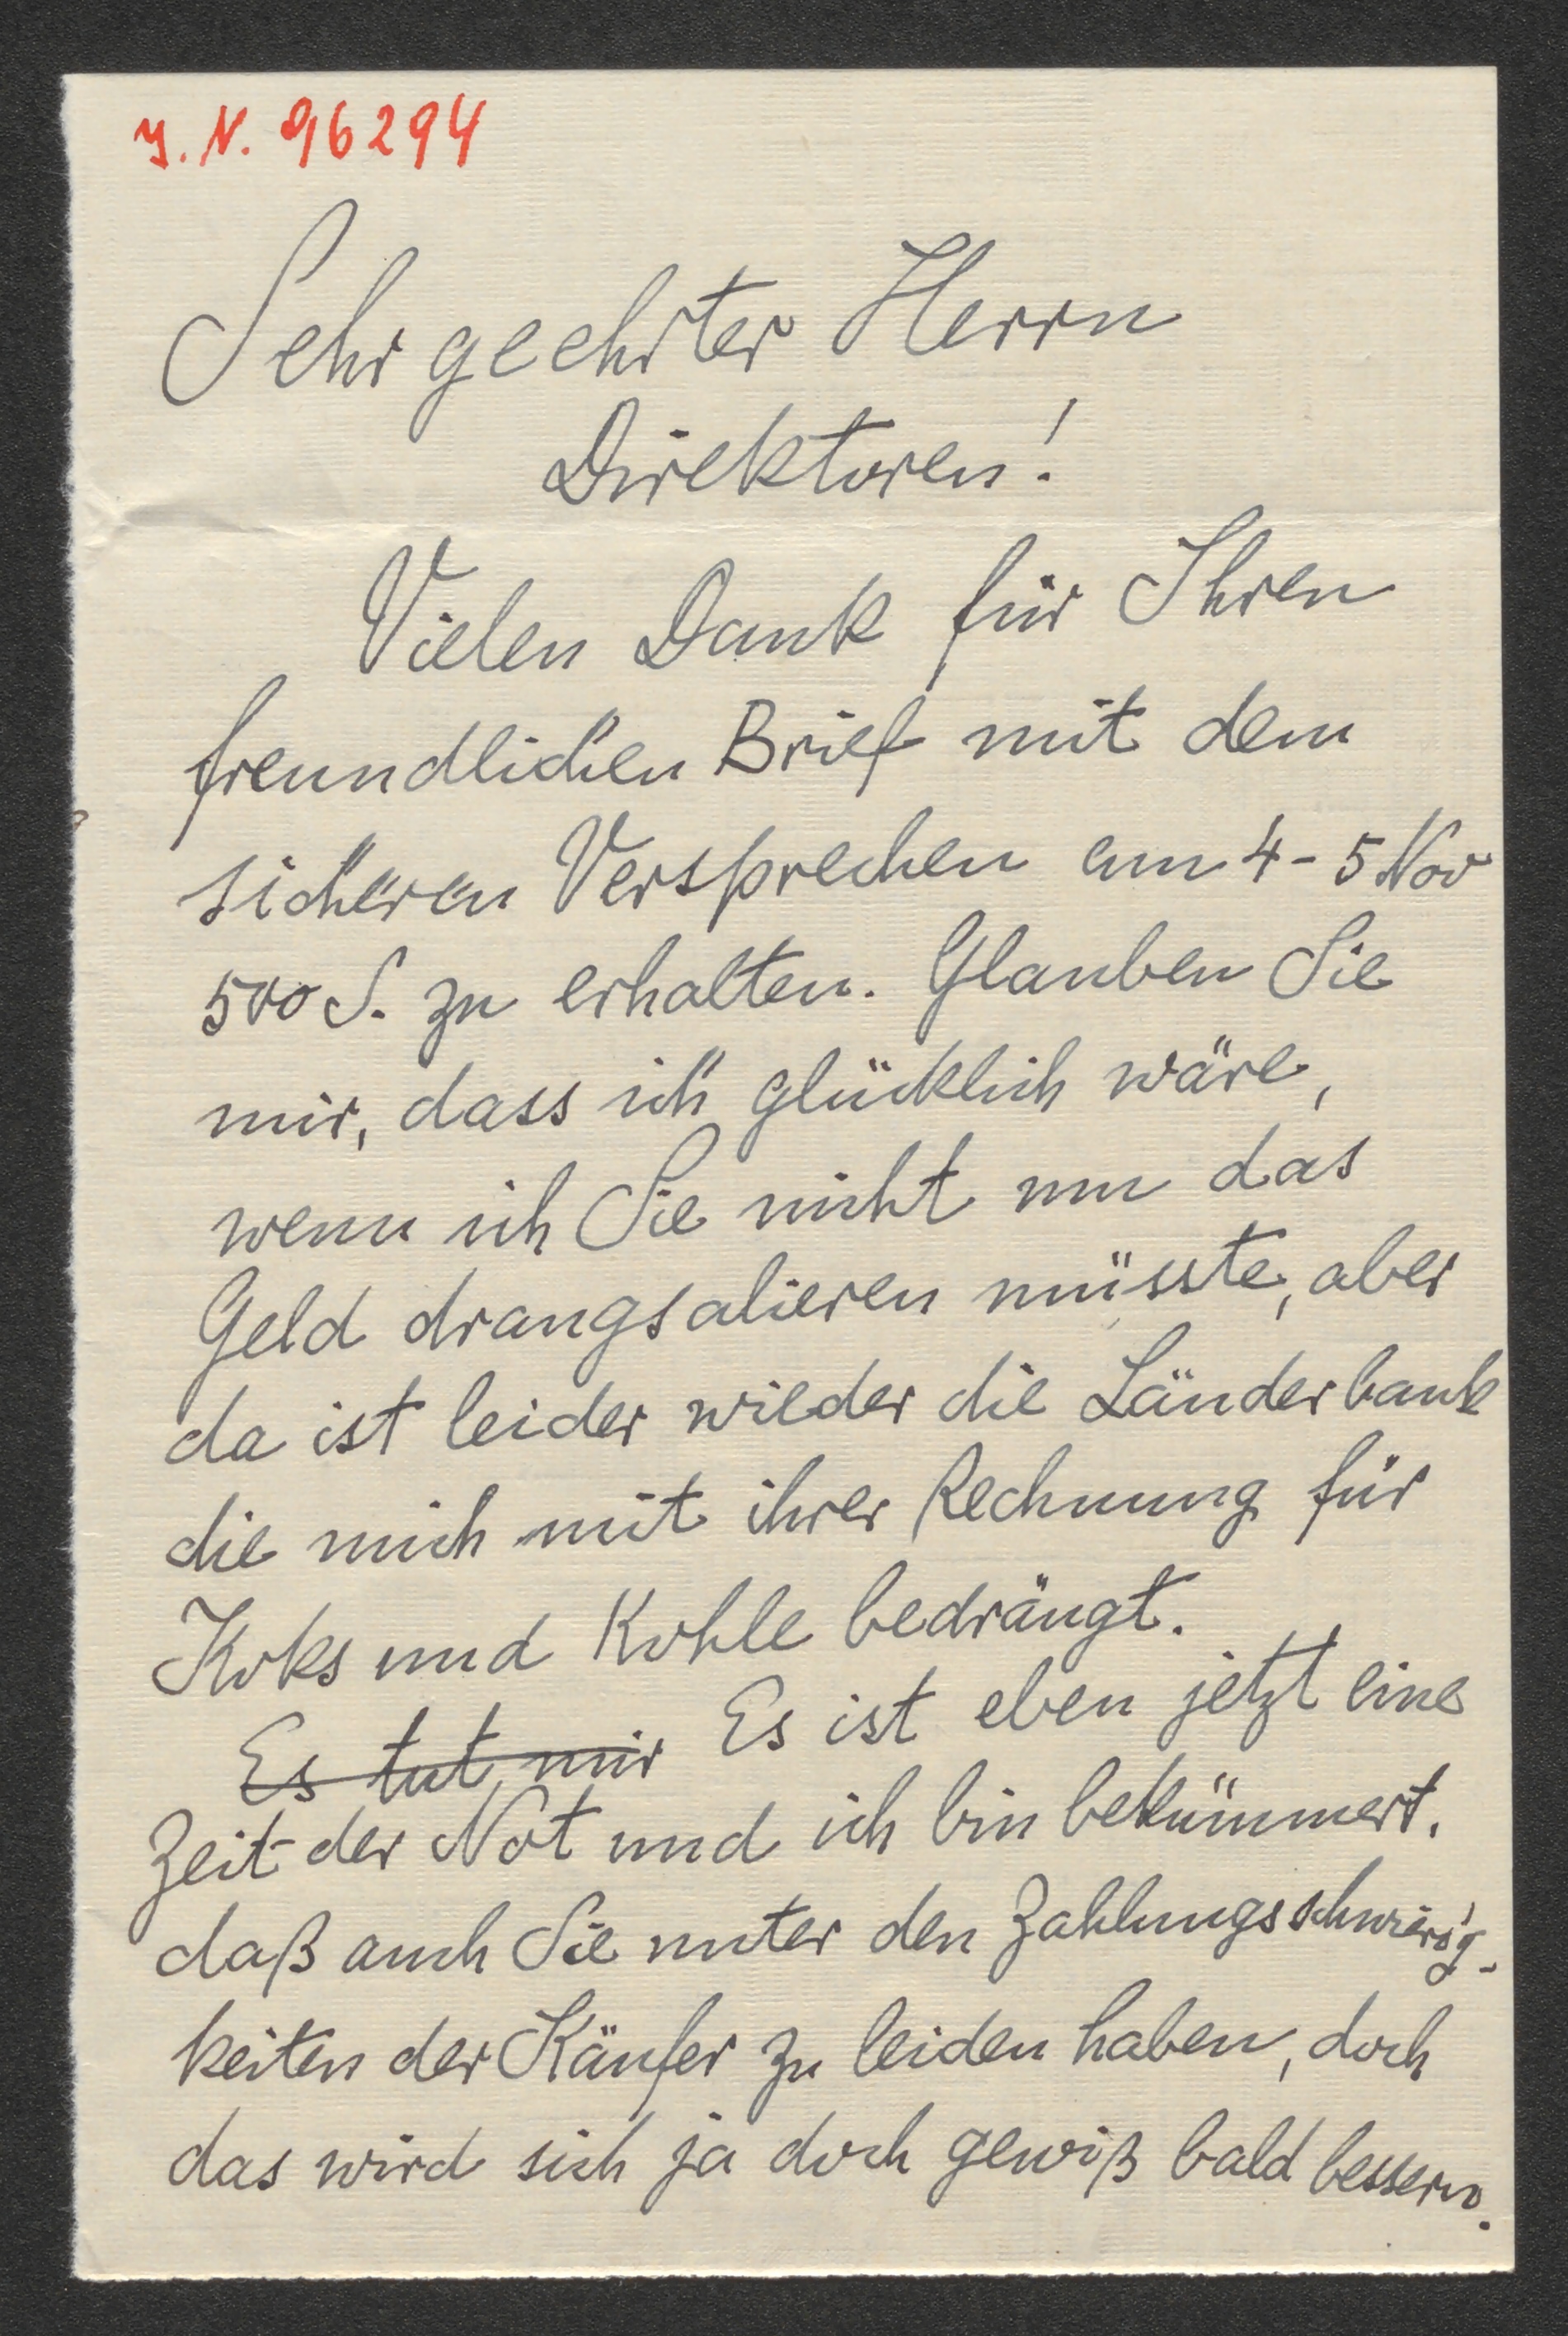 J. N. 96294
Sehr geehrter Herrn
Direktoren!
Vielen Dank für Ihren
freundlichen Brief mit dem
sicheren Versprechen am 4-5 Nov
500 S. zu erhalten. Glauben Sie
mir, dass ich glücklich wäre,
wenn ich Sie nicht um das
Geld drangsalieren müsste, aber
da ist leider wieder die Länderbank
die mich mit ihrer Rechnung für
Koks und Kohle bedrängt.
Es tut mir Es ist eben jetzt eine
Zeit der Not und ich bin bekümmert.
daß auch Sie unter den Zahlungsschwierig-
keiten der Käufer zu leiden haben, doch
das wird sich ja doch gewiß bald bessern.